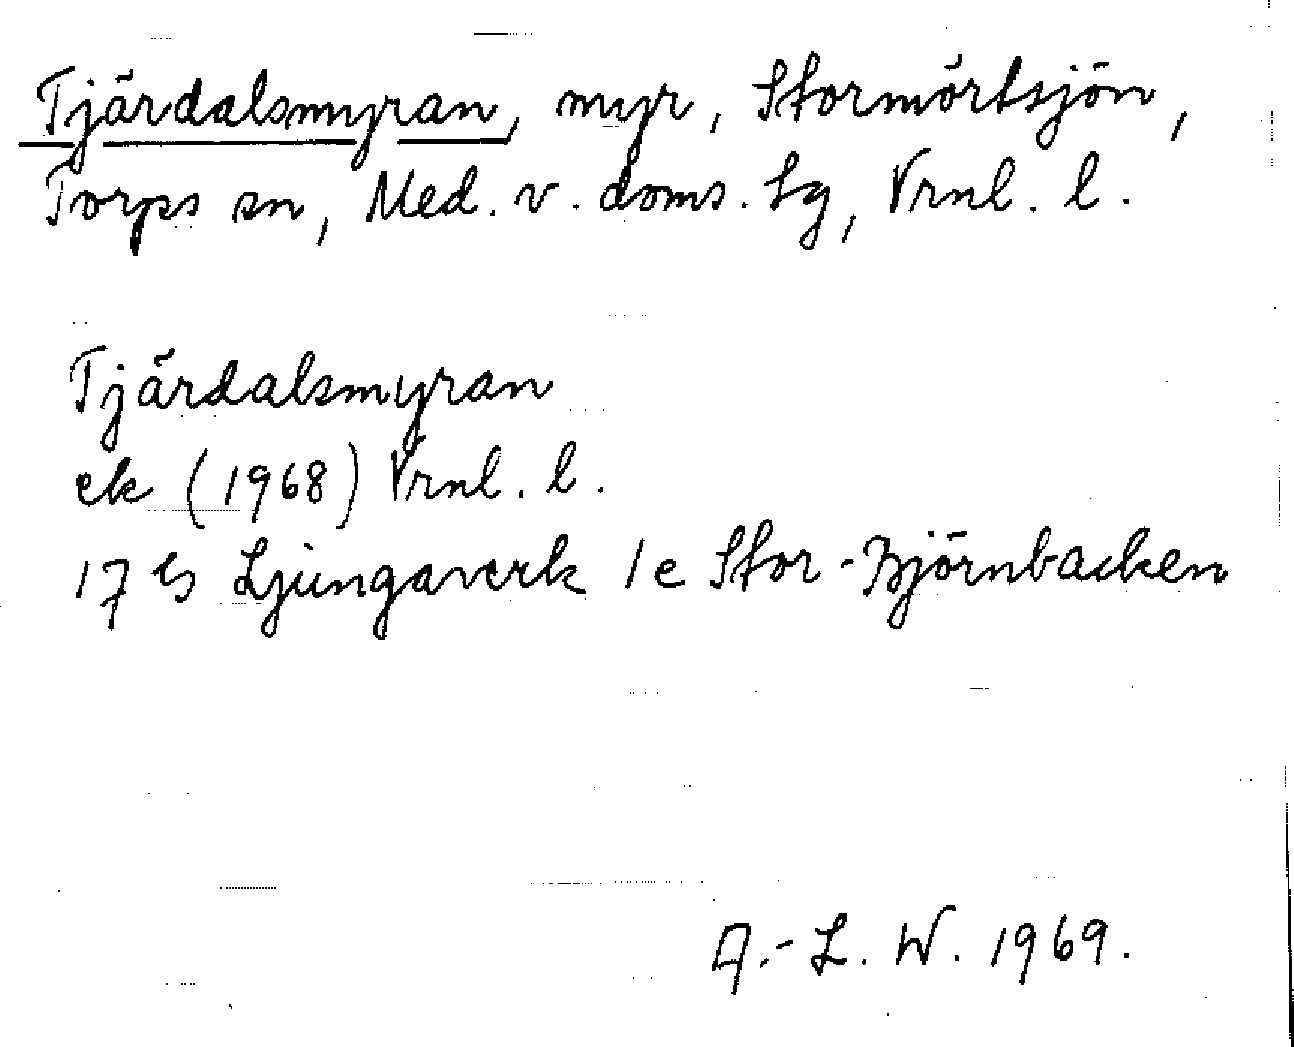 Tjärdalsmyran, myr, Stormörtsjön,
Torps sn, Med. v. doms. tg, Vrnl. l.
Tjärdalsmyran
ek (1968) Vrnl. l.
17 Ljungaverk 1e Stor-Björnbacken
A.-L. W. 1969.